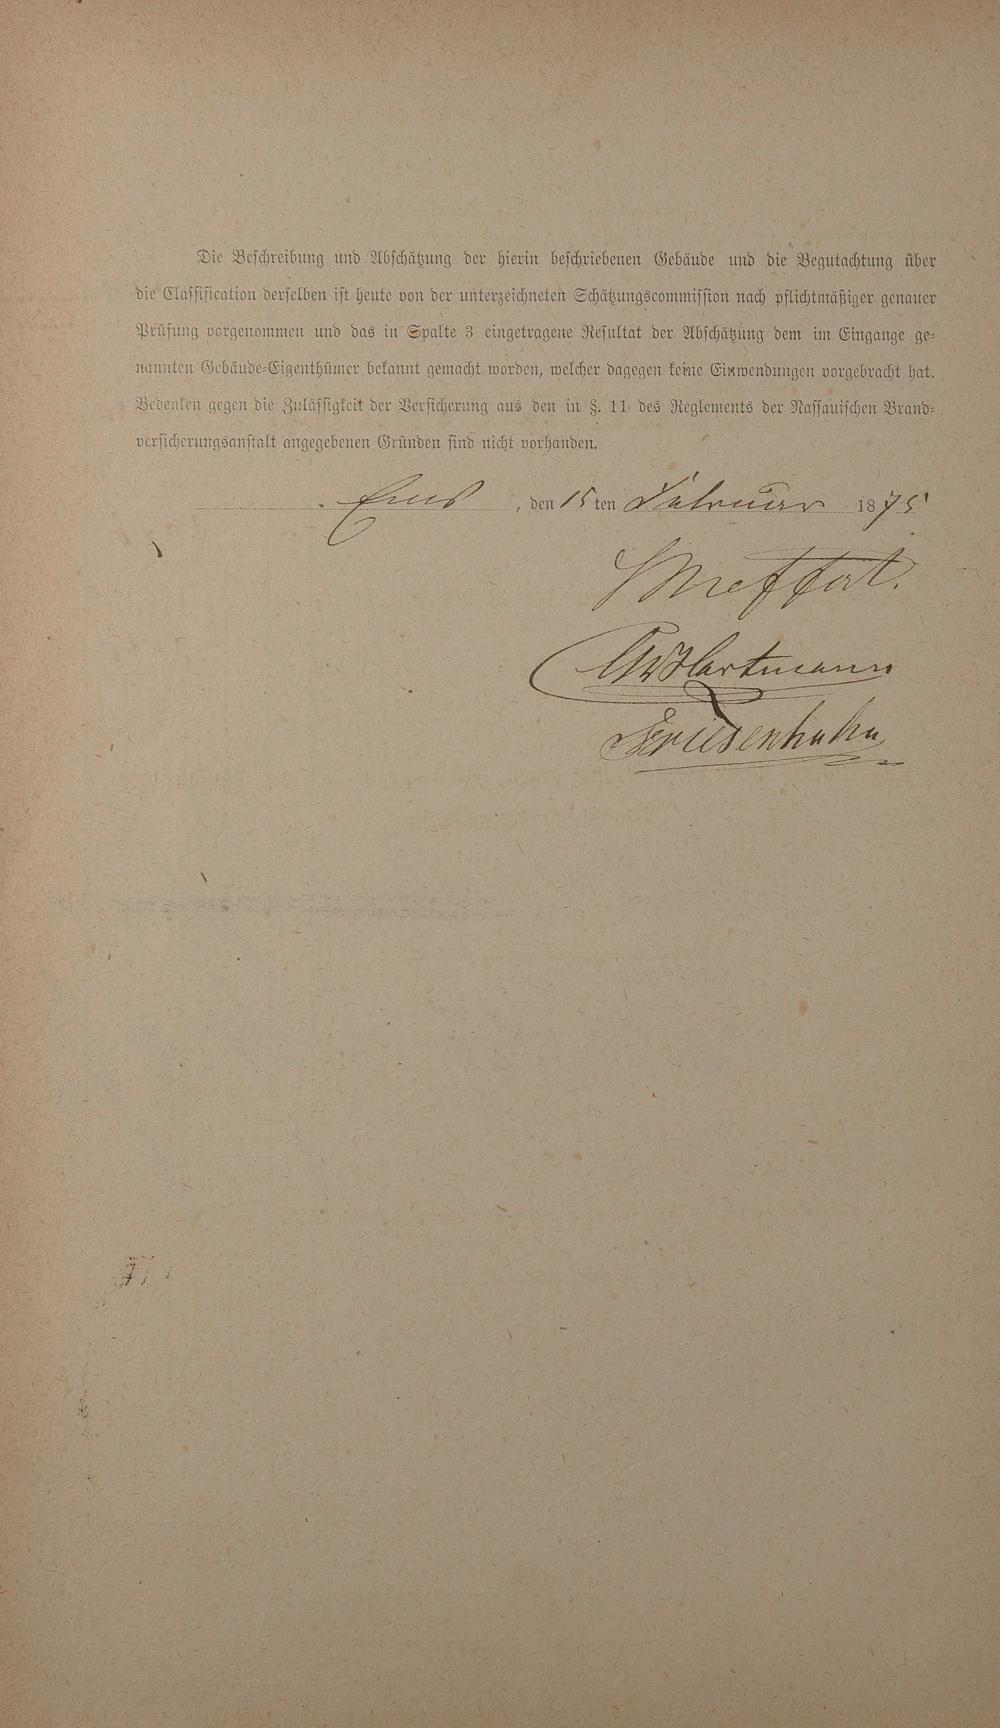 Die Beschreibung und Abschätzung der hierin beschriebenen Gebäude und die Begutachtung über
die Classification derselben ist heute von der unterzeichneten Schätzungscommission nach pflichtmäßiger genauer
Prüfung vorgenommen und das in Spalte 3 eingetragene Resultat der Abschätzung dem im Eingange ge-
nannten Gebäude-Eigenthümer bekannt gemacht worden, welcher dagegen keine Einwendungen vorgebracht hat.
Bedenken gegen die Zulässigkeit der Versicherung aus den in §. 11 des Reglements der Nassauischen Brand-
versicherungsanstalt angegebenen Gründen sind nicht vorhanden.
Ems, den 15ten Februar 1875
Meffert.
Hartmann
Friedenhahn